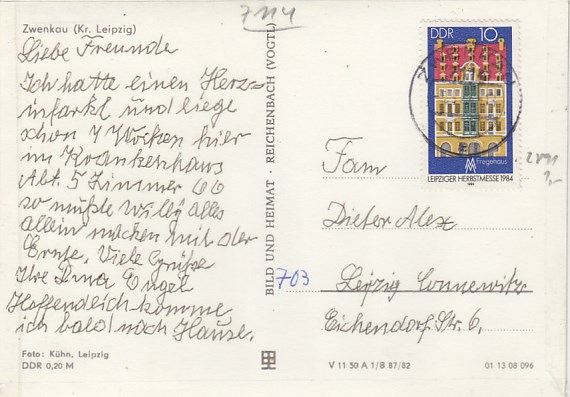 7114
Zwenkau (Kr. Leipzig)
Liebe Freunde
Ich hatte einen Herz=
infarkt und liege
schon 4 Wochen hier
im Krankenhaus
Abt. 5 Zimmer 66
so mußte Willy alles
allein machen mit der
Ernte. Viele Grüße
Ihre Irma Engel
Hoffendlich komme
ich bald nach Hause.
Foto: Kühn, Leipzig
DDR 0,20 M
BILD UND HEIMAT · REICHENBACH (VOGTL)
DDR 10
Fregehaus
MM
LEIPZIGER HERBSTMESSE 1984
Fam
Dieter Alex
703
Leipzig Connewitz
Eichendorf Str. 6,
V 11 50 A 1/B 87/82
01 13 08 096